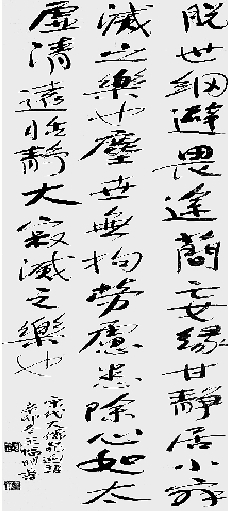 脱世網避畏途蕳妄緣甘靜居小寂
滅之樂也塵世無拘勞慮悉除心如太
虛清遠恬靜大寂滅之樂也
宋代大儒